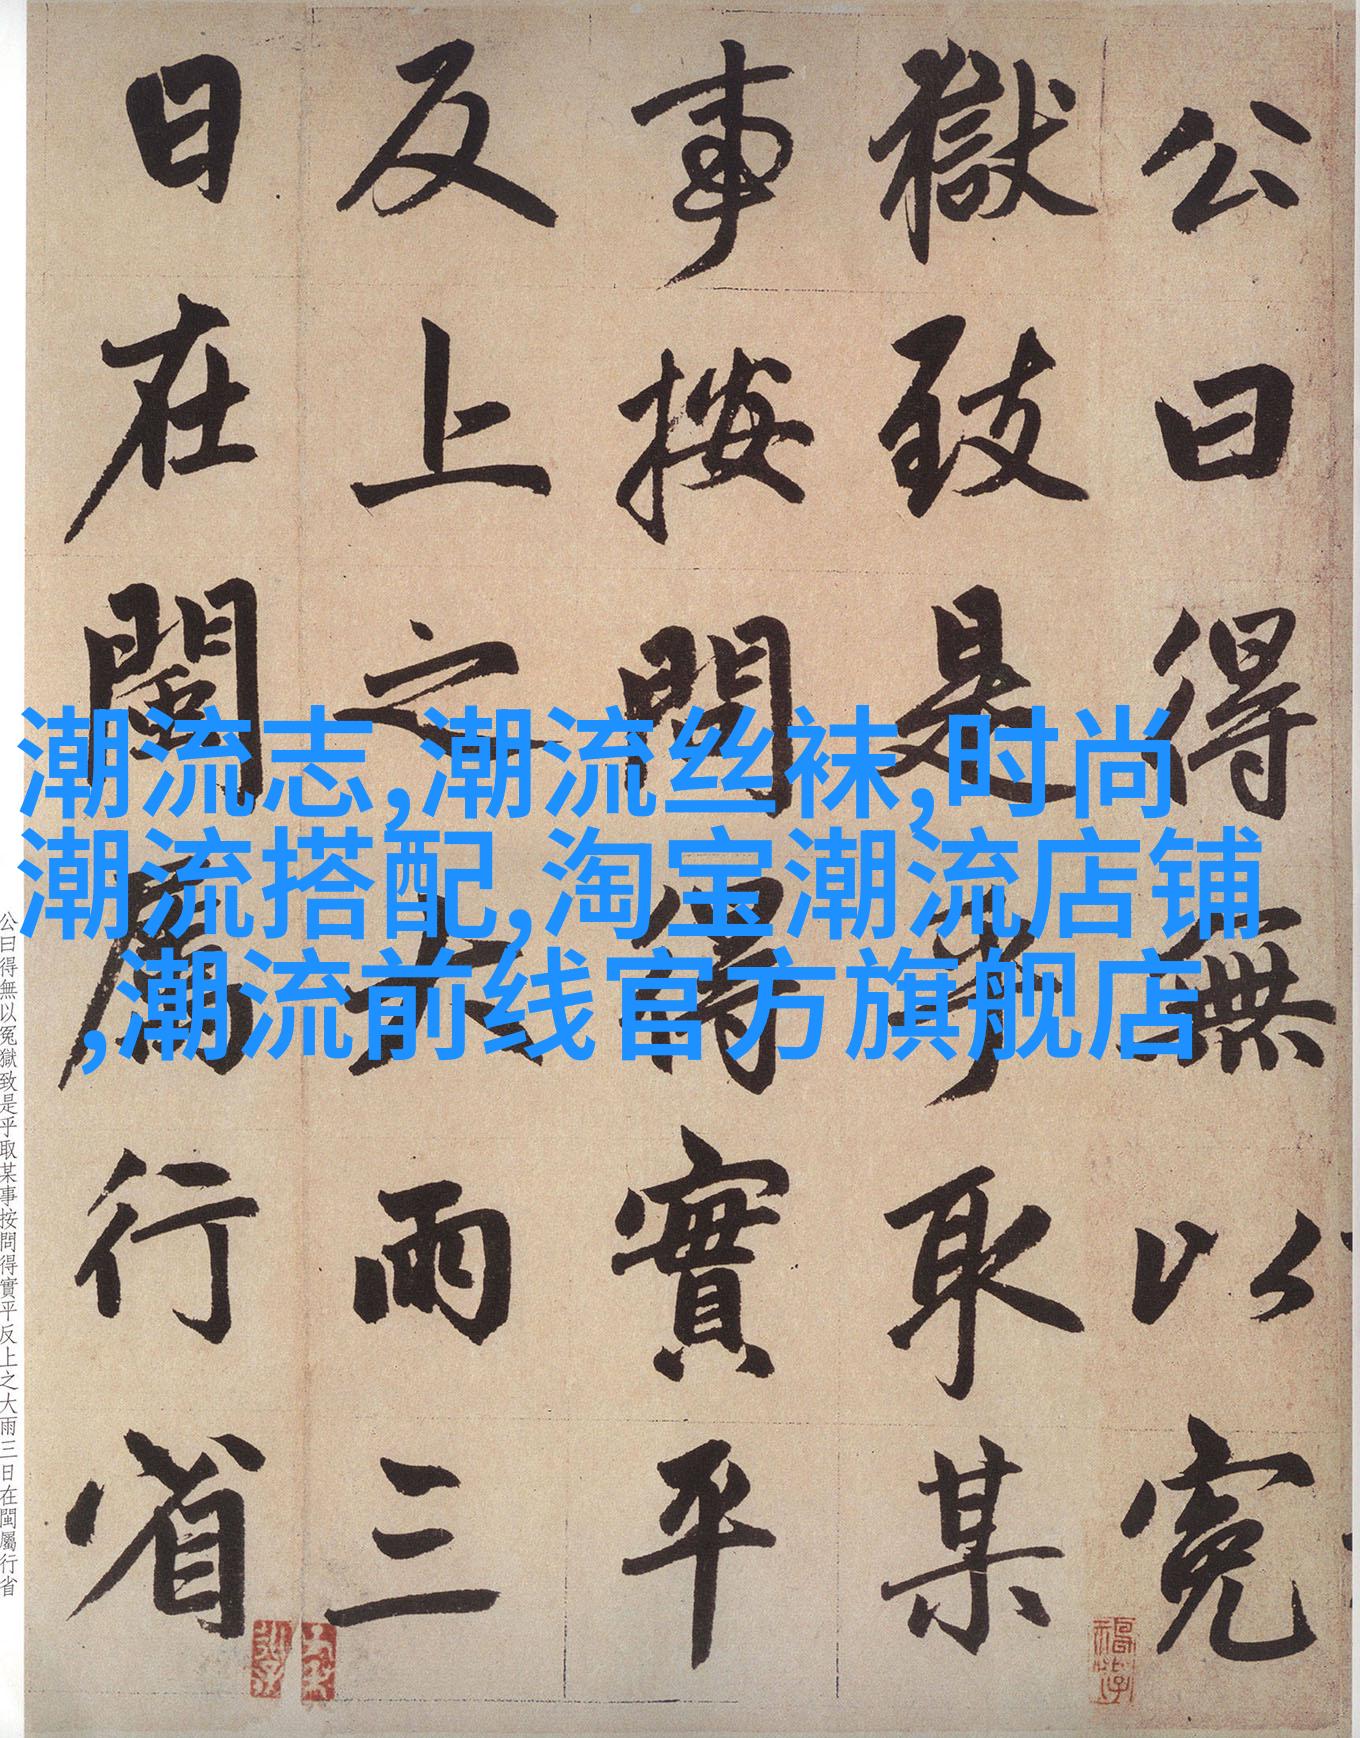 公曰得無以冤
獄致是乎取某
事按問得實平
反上之大雨三
日在閩屬行省
潮流志,潮流丝袜,时尚
潮流搭配,淘宝潮流店铺
,潮流前线官方旗舰店
公曰得無以冤獄致是乎取某事按問得實平反上之大雨三日在閩屬行省